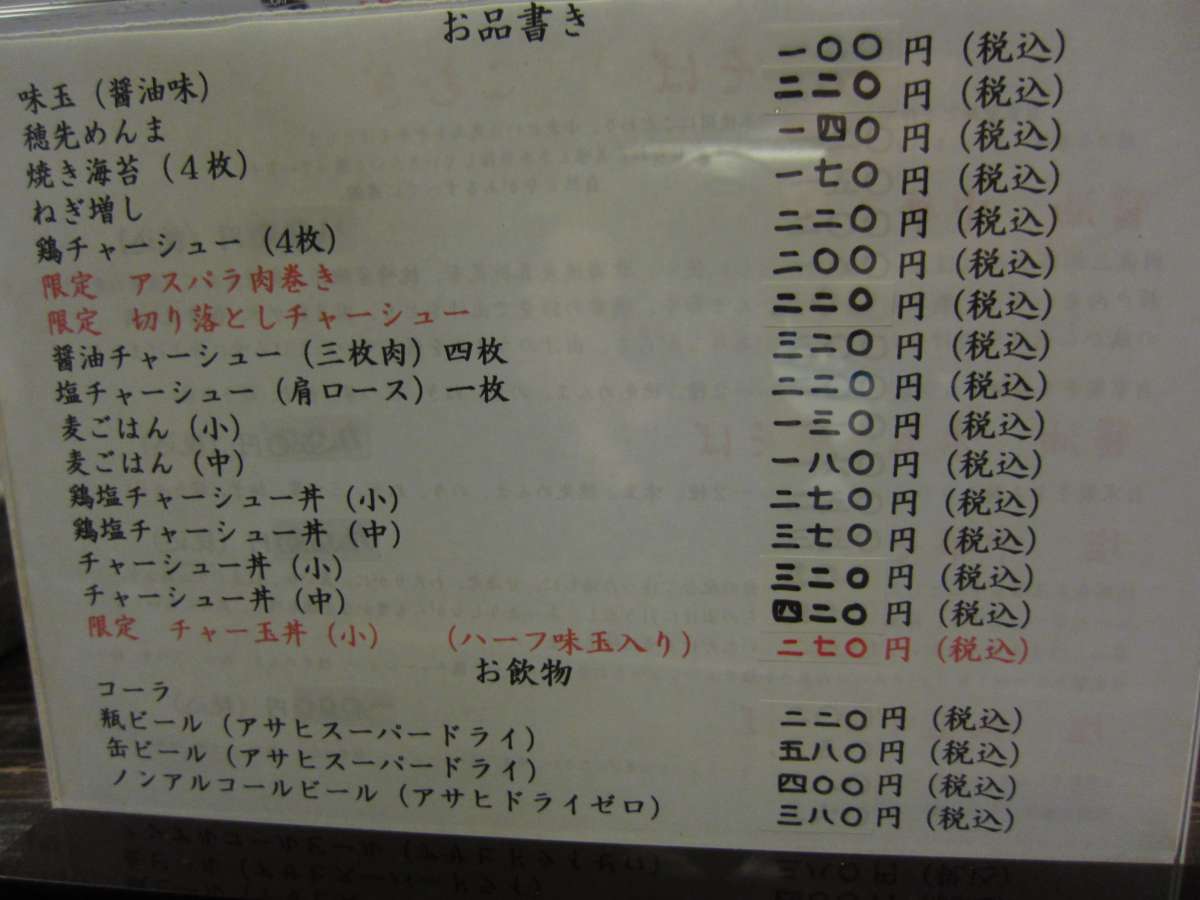 お品書き
味玉（醤油味） 一〇〇円（税込）
穂先めんま 二二〇円（税込）
焼き海苔（４枚） 一四〇円（税込）
ねぎ増し 一七〇円（税込）
鶏チャーシュー（4枚） 二二〇円（税込）
限定　アスパラ肉巻き 二〇〇円（税込）
限定　切り落としチャーシュー 二二〇円（税込）
醤油チャーシュー（三枚肉）四枚 三二〇円（税込）
塩チャーシュー（肩ロース）一枚 二二〇円（税込）
麦ごはん（小） 一三〇円（税込）
麦ごはん（中） 一八〇円（税込）
鶏塩チャーシュー丼（小） 二七〇円（税込）
鶏塩チャーシュー丼（中） 三七〇円（税込）
チャーシュー丼（小） 三二〇円（税込）
チャーシュー丼（中） 四二〇円（税込）
限定　チャー玉丼（小）　（ハーフ味玉入り） 二七〇円（税込）
お飲物
コーラ 二二〇円（税込）
瓶ビール（アサヒスーパードライ） 五八〇円（税込）
缶ビール（アサヒスーパードライ） 四〇〇円（税込）
ノンアルコールビール（アサヒドライゼロ） 三八〇円（税込）